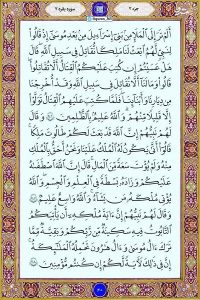 جزء ۲
سوره بقره ۲
أَلَمْ تَرَ إِلَى ٱلْمَلَإِ مِنۢ بَنِىٓ إِسْرَٰٓءِيلَ مِنۢ بَعْدِ مُوسَىٰٓ إِذْ قَالُوا۟
لِنَبِىٍّ لَّهُمُ ٱبْعَثْ لَنَا مَلِكًا نُّقَٰتِلْ فِى سَبِيلِ ٱللَّهِ ۖ قَالَ
هَلْ عَسَيْتُمْ إِن كُتِبَ عَلَيْكُمُ ٱلْقِتَالُ أَلَّا تُقَٰتِلُوا۟ ۖ
قَالُوا۟ وَمَا لَنَآ أَلَّا نُقَٰتِلَ فِى سَبِيلِ ٱللَّهِ وَقَدْ أُخْرِجْنَا
مِن دِيَٰرِنَا وَأَبْنَآئِنَا ۖ فَلَمَّا كُتِبَ عَلَيْهِمُ ٱلْقِتَالُ تَوَلَّوْا۟
إِلَّا قَلِيلًا مِّنْهُمْ ۗ وَٱللَّهُ عَلِيمٌۢ بِٱلظَّٰلِمِينَ ۝٢٤٦ وَقَالَ
لَهُمْ نَبِيُّهُمْ إِنَّ ٱللَّهَ قَدْ بَعَثَ لَكُمْ طَالُوتَ مَلِكًا ۚ
قَالُوٓا۟ أَنَّىٰ يَكُونُ لَهُ ٱلْمُلْكُ عَلَيْنَا وَنَحْنُ أَحَقُّ بِٱلْمُلْكِ
مِنْهُ وَلَمْ يُؤْتَ سَعَةً مِّنَ ٱلْمَالِ ۚ قَالَ إِنَّ ٱللَّهَ ٱصْطَفَىٰهُ
عَلَيْكُمْ وَزَادَهُۥ بَسْطَةً فِى ٱلْعِلْمِ وَٱلْجِسْمِ ۖ وَٱللَّهُ
يُؤْتِى مُلْكَهُۥ مَن يَشَآءُ ۚ وَٱللَّهُ وَٰسِعٌ عَلِيمٌ ۝٢٤٧
وَقَالَ لَهُمْ نَبِيُّهُمْ إِنَّ ءَايَةَ مُلْكِهِۦٓ أَن يَأْتِيَكُمُ
ٱلتَّابُوتُ فِيهِ سَكِينَةٌ مِّن رَّبِّكُمْ وَبَقِيَّةٌ مِّمَّا
تَرَكَ ءَالُ مُوسَىٰ وَءَالُ هَٰرُونَ تَحْمِلُهُ ٱلْمَلَٰٓئِكَةُ ۚ
إِنَّ فِى ذَٰلِكَ لَءَايَةً لَّكُمْ إِن كُنتُم مُّؤْمِنِينَ ۝٢٤٨
۴۰